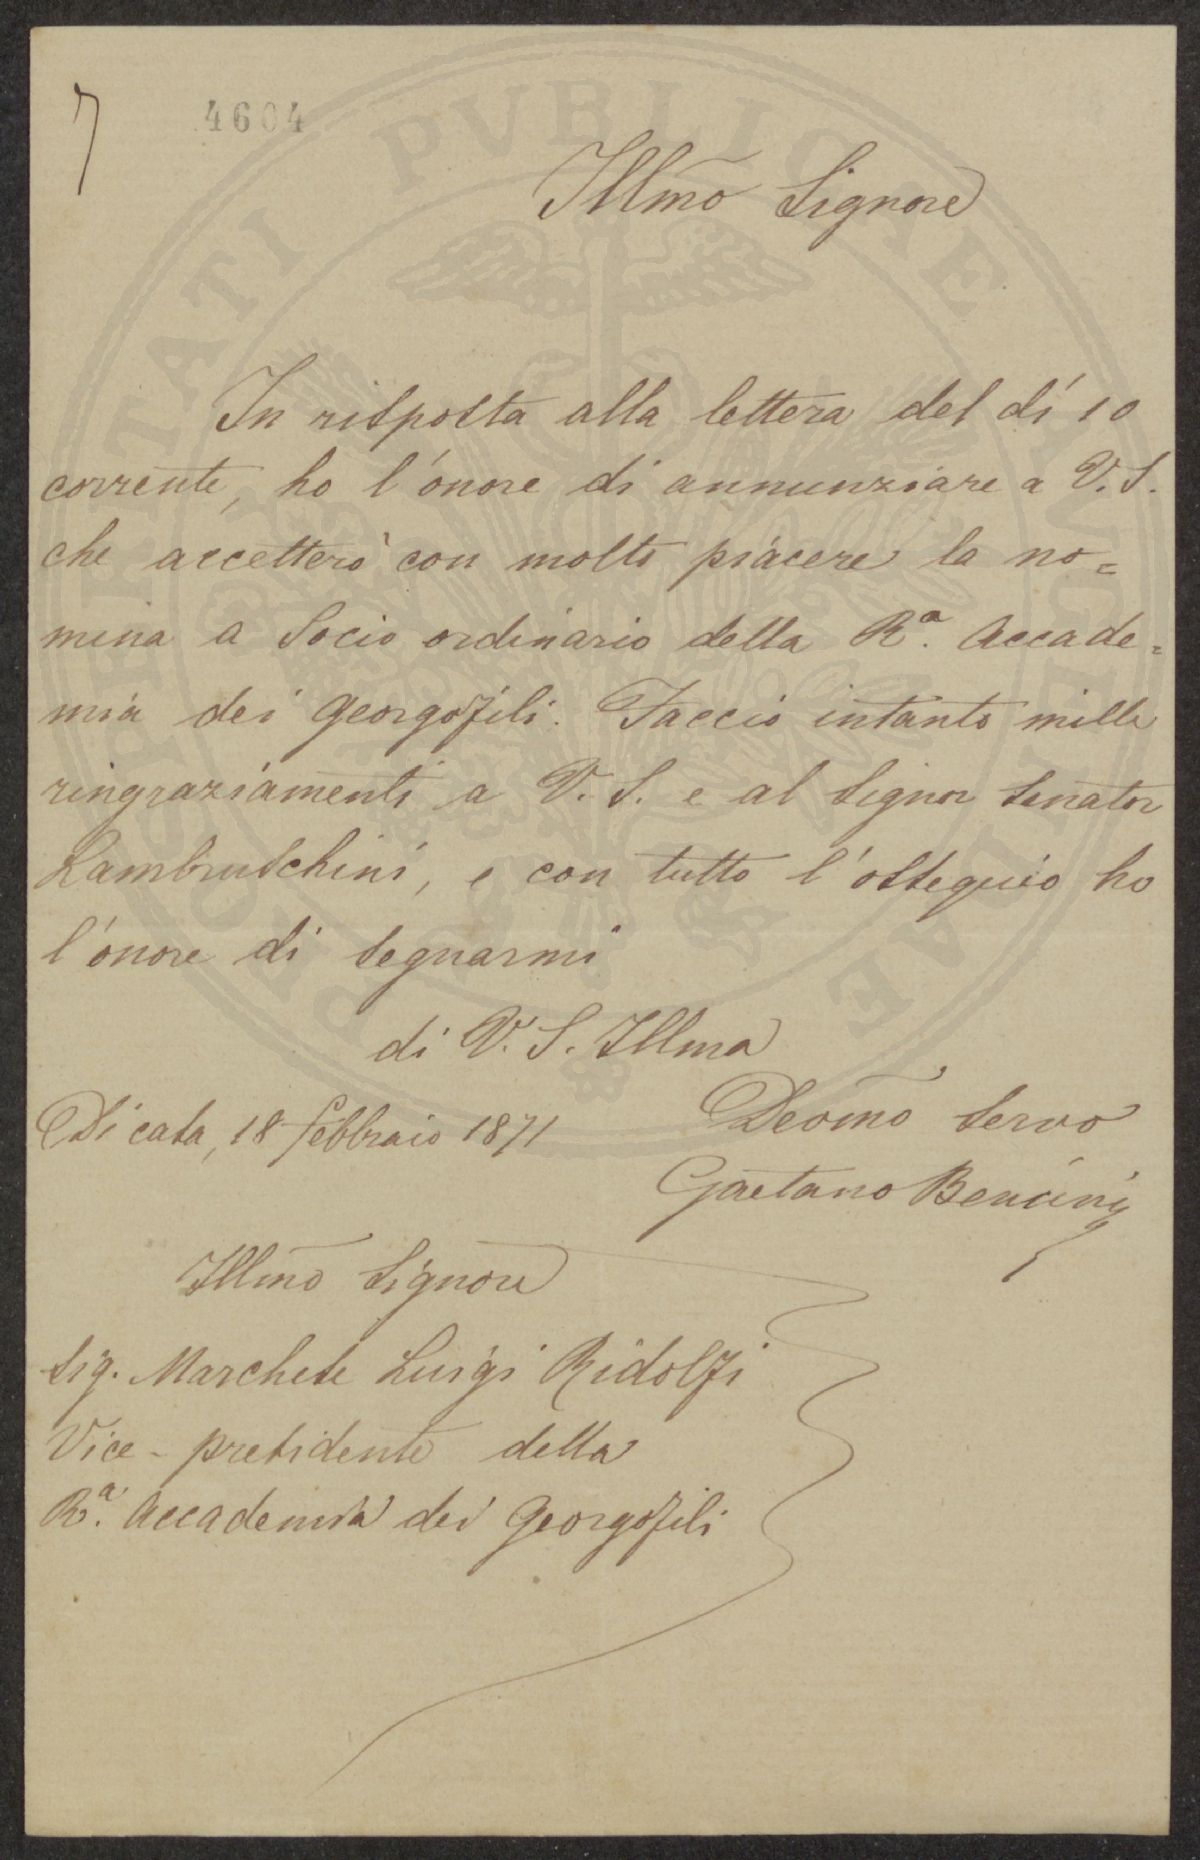 7
4604
PROSPERITATI PVBLICAE AVGENDAE
Illmo Signore
In risposta alla lettera del dí 10
corrente, ho l'onore di annunziare a V. S.
che accetterò con molto piacere la no=
mina a Socio ordinario della Ra. Accade=
mia dei Georgofili. Faccio intanto mille
ringraziamenti a V. S. e al Signor Senator
Lambruschini, e con tutto l'ossequio ho
l'onore di segnarmi
di V. S. Illma
Di casa, 18 febbraio 1871
Devmo servo
Gaetano Bencini
Illmo Signore
Sig. Marchese Luigi Ridolfi
Vice-presidente della
Ra. Accademia dei Georgofili